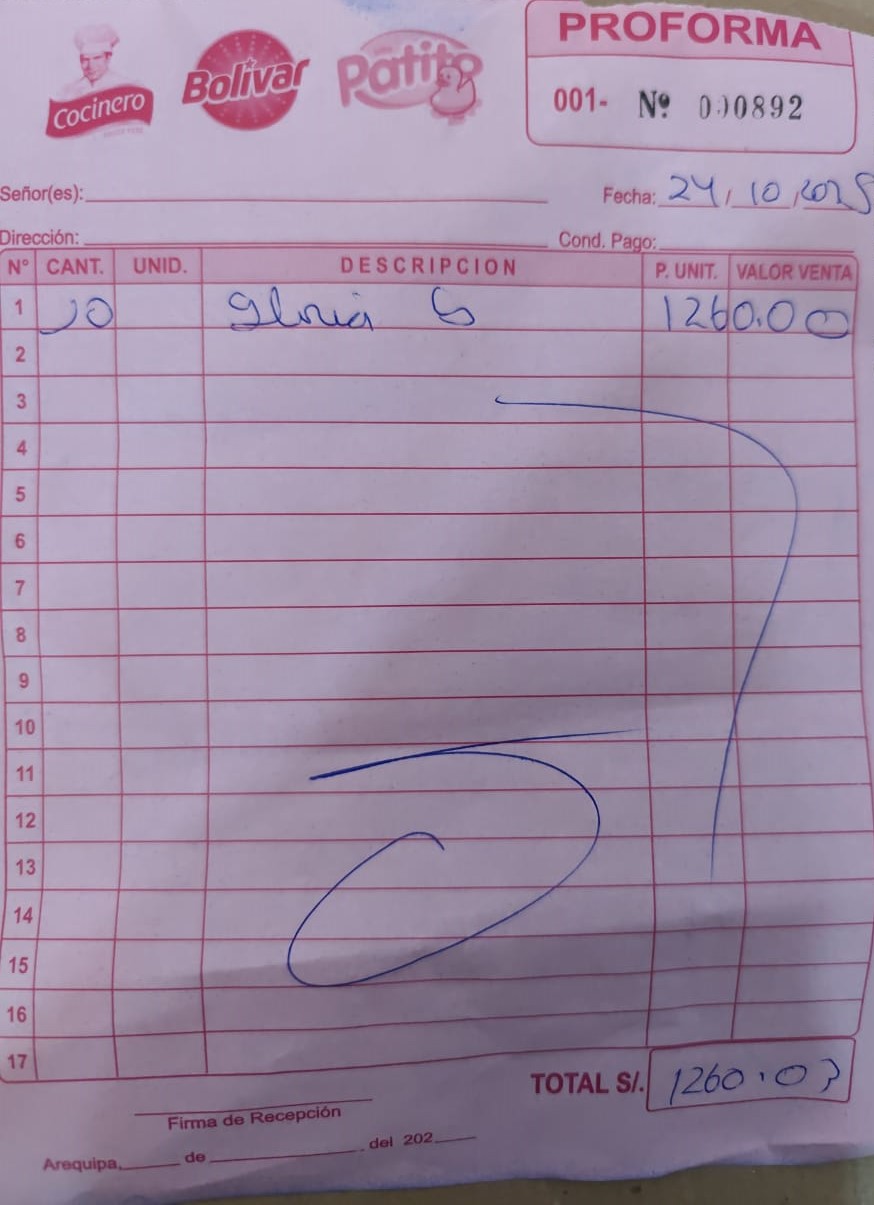 Cocinero
Bolívar
Patito
PROFORMA
001- Nº 000892
Señor(es):
Fecha: 24/10/2025
Dirección:
Cond. Pago:
Nº CANT. UNID. DESCRIPCION P. UNIT. VALOR VENTA
1 10 Gloria G 1260.00
2
3
4
5
6
7
8
9
10
11
12
13
14
15
16
17
TOTAL S/. 1260.00
Firma de Recepción
Arequipa, de del 202